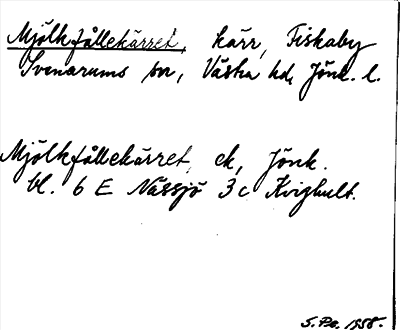 Mjölkfållekärret, kärr, Fiskaby
Svenarums sn, Västra hd, Jönk. l.
Mjölkfållekärret, ek, Jönk.
bl. 6 E Nässjö 3 c Kvighult.
S.Po. 1958.